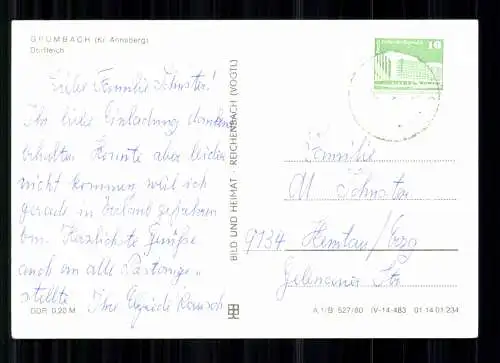 GRUMBACH (Kr. Annaberg)
Dorfteich
Liebe Familie Schuster!
Ihr liebe Einladung dankend
erhalten Konnte aber leider
nicht kommen, weil ich
gerade in Urlaub gefahren
bin. Herzlichste Grüße
auch an alle Postange-
stellte Ihre
DDR 0,20 M
BILD UND HEIMAT REICHENBACH (VOGTL)
10
Familie
M Schuster
9134 /Erzg
Str
A 1/B 527/80 IV-14-483 01 14 01 234